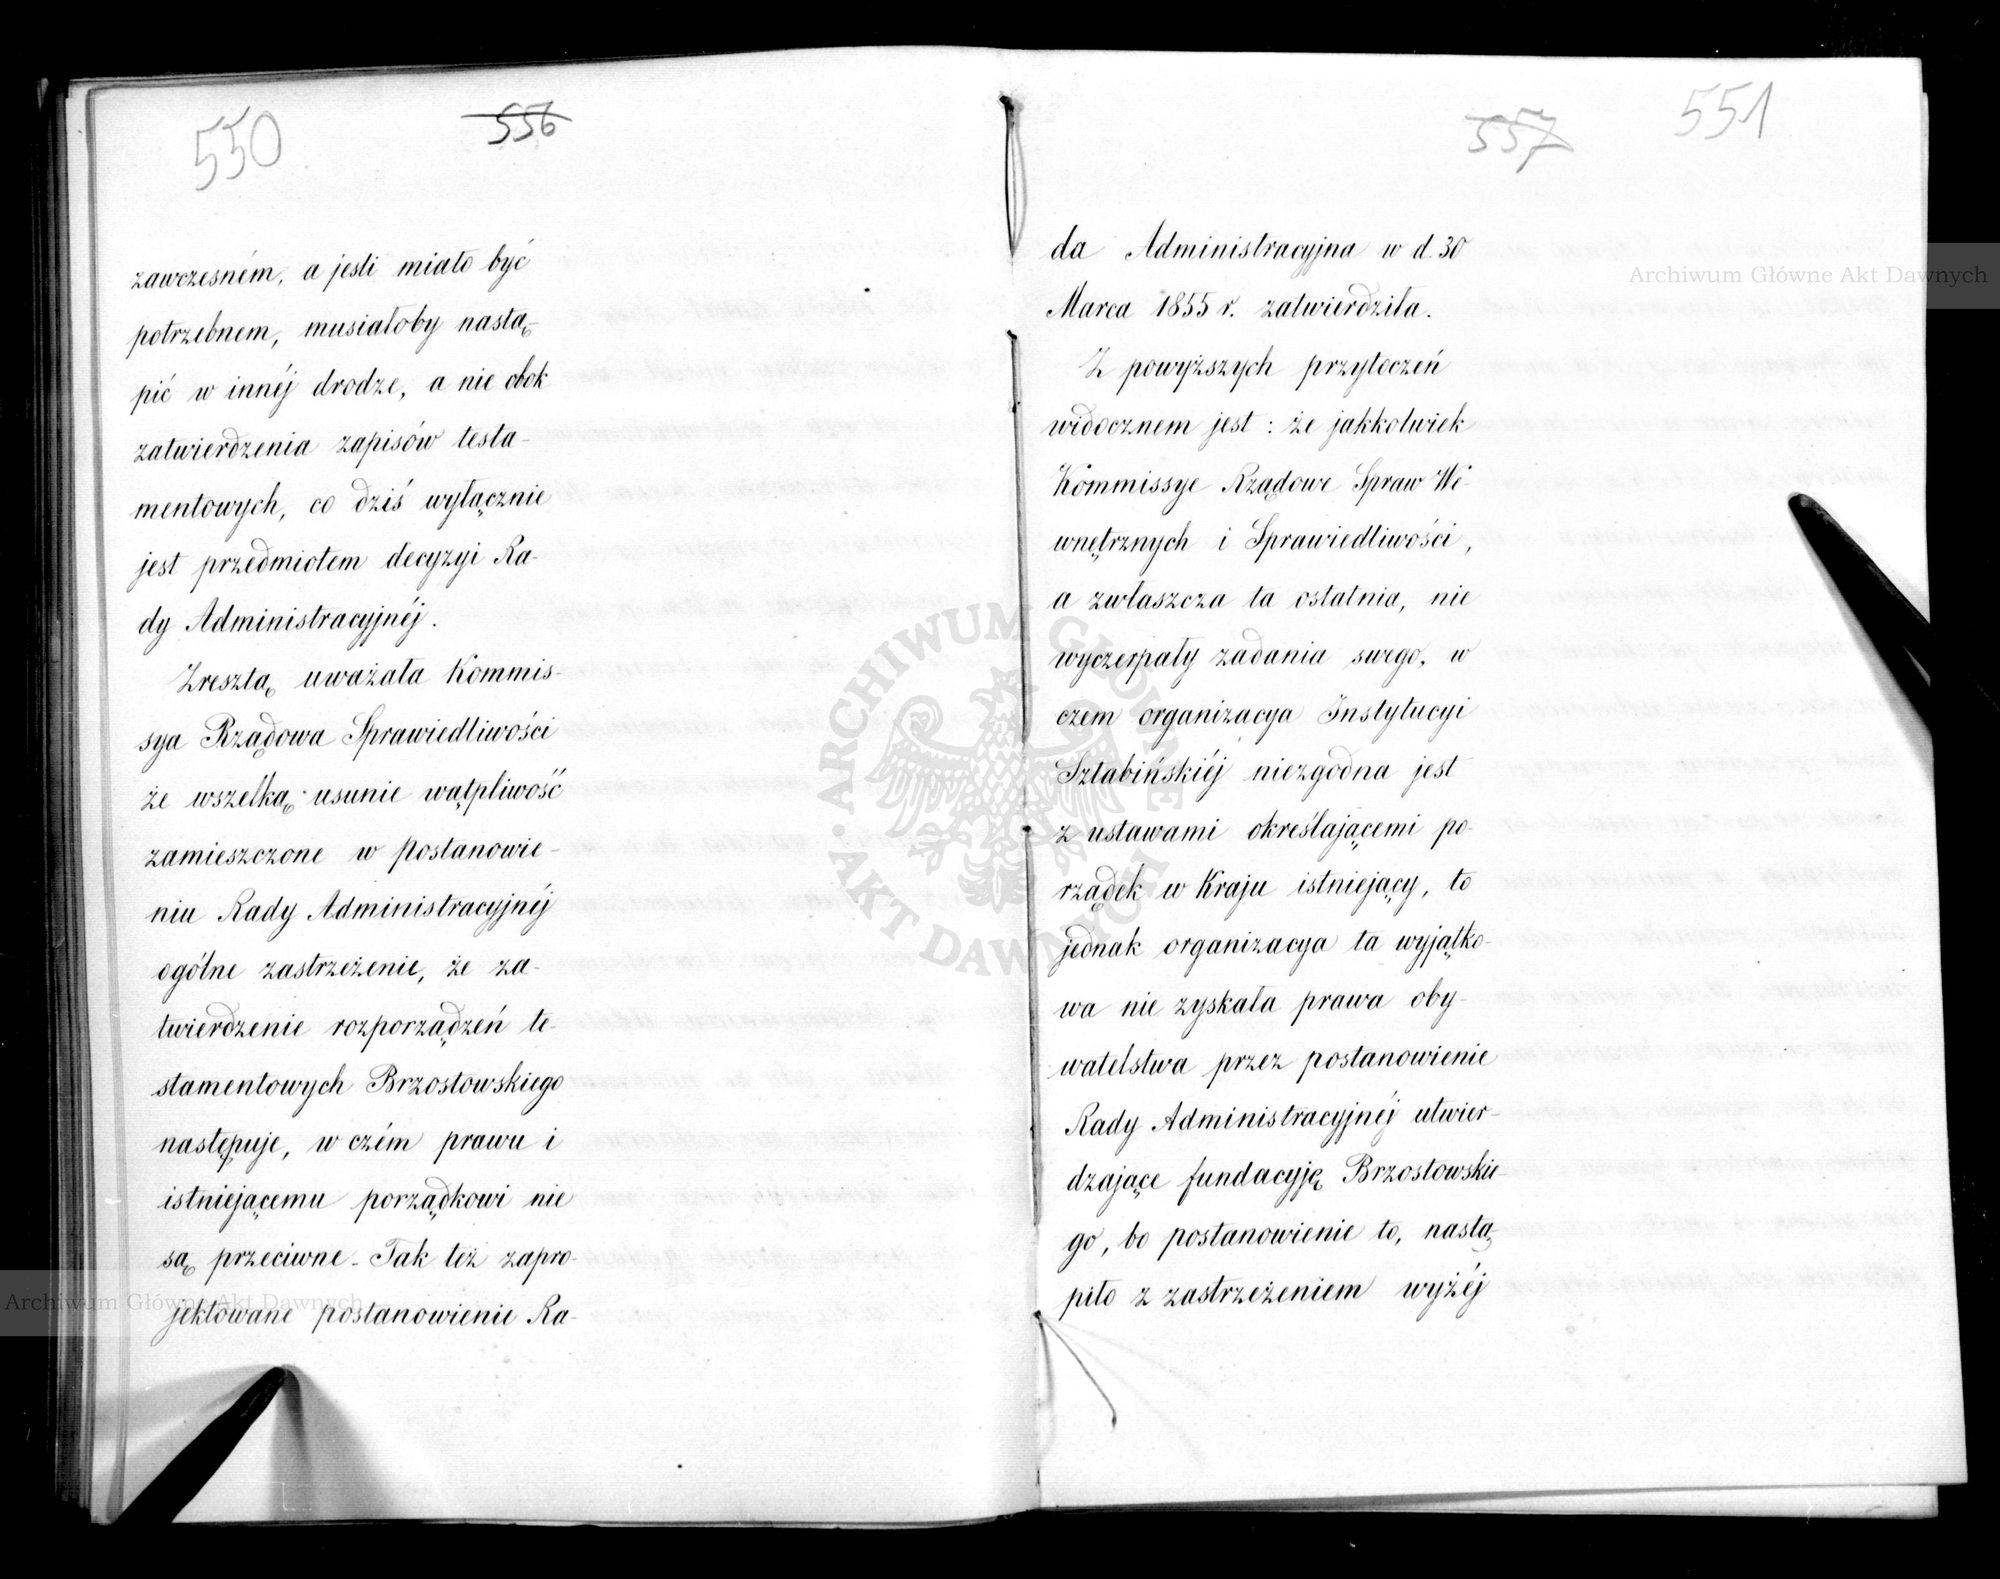 550
556
zawczesném, a jesli miało być
potrzebnem, musiałoby nastą-
pić w innéj drodze, a nie obok
zatwierdzenia zapisów testa-
mentowych, co dziś wyłącznie
jest przedmiotem decyzyi Ra-
dy Administracyjnéj.
Zresztą uważała Kommis-
sya Rządowa Sprawiedliwości
że wszelką usunie wątpliwość
zamieszczone w postanowie-
niu Rady Administracyjnéj
ogólne zastrzeżenie, że za-
twierdzenie rozporządzeń te-
stamentowych Brzostowskiego
następuje, w czém prawu i
istniejącemu porządkowi nie
są przeciwne. Tak też zapro-
jektowane postanowienie Ra-
557
551
da Administracyjna w d. 30
Marca 1855 r. zatwierdziła.
Z powyższych przytoczeń
widocznem jest: że jakkolwiek
Kommissye Rządowe Spraw We-
wnętrznych i Sprawiedliwości,
a zwłaszcza ta ostatnia, nie
wyczerpały zadania swego, w
czem organizacya Instytucyi
Sztabińskiéj niezgodna jest
z ustawami określającemi po-
rządek w Kraju istniejący, to
jednak organizacya ta wyjątko-
wa nie zyskała prawa oby-
watelstwa przez postanowienie
Rady Administracyjnéj utwier-
dzające fundacyję Brzostowskie-
go, bo postanowienie to, nastą-
piło z zastrzeżeniem wyżéj
Archiwum Główne Akt Dawnych
ARCHIWUM GŁÓWNE AKT DAWNYCH
Archiwum Główne Akt Dawnych